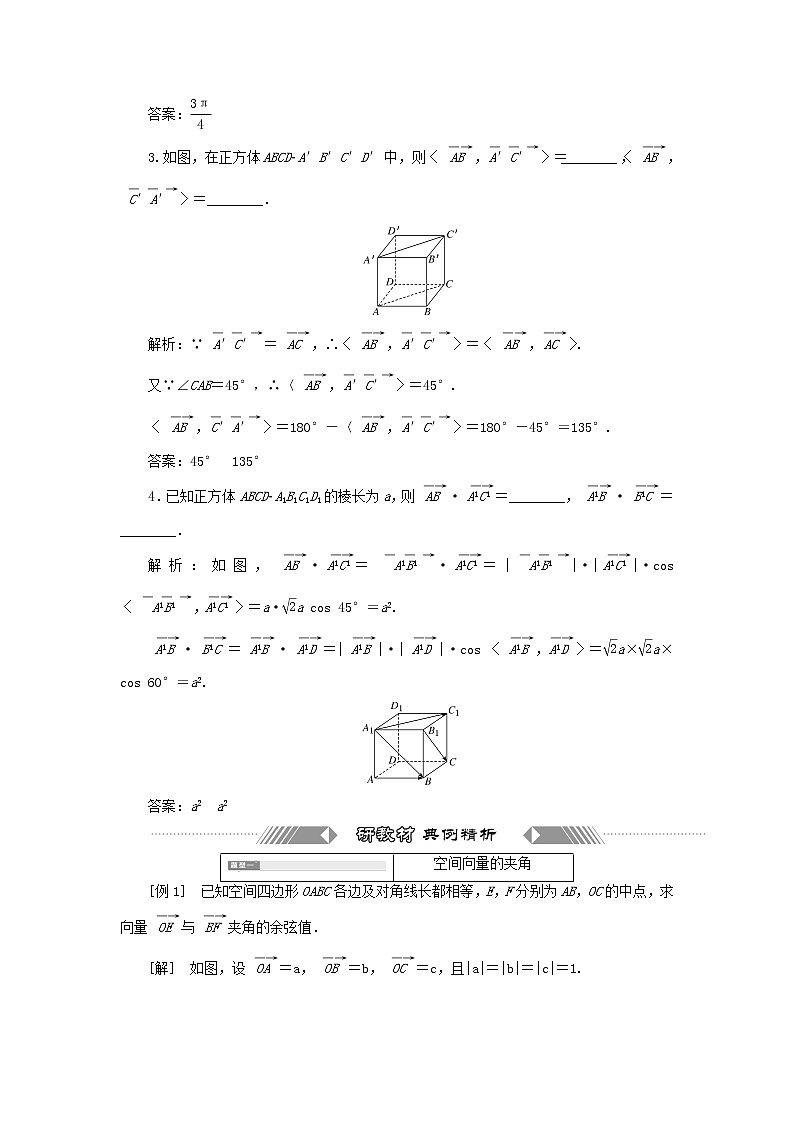 答案:3π/4
3.如图,在正方体ABCD-A′B′C′D′中,则〈AB→,A′C′→〉=________,〈AB→,
C′A′→〉=________.
D′ C′
A′ B′
D C
A B
解析:∵A′C′→=AC→,∴〈AB→,A′C′→〉=〈AB→,AC→〉.
又∵∠CAB=45°,∴〈AB→,A′C′→〉=45°.
〈AB→,C′A′→〉=180°-〈AB→,A′C′→〉=180°-45°=135°.
答案:45° 135°
4.已知正方体ABCD-A₁B₁C₁D₁的棱长为a,则AB→·A1C1→=________,A1B→·B1C→=
________.
解析:如图,AB→·A1C1→=A1B1→·A1C1→=|A1B1→|·|A1C1→|·cos
〈A1B1→,A1C1→〉=a·√2a cos 45°=a².
A1B→·B1C→=A1B→·A1D→=|A1B→|·|A1D→|·cos〈A1B→,A1D→〉=√2a×√2a×
cos 60°=a².
D₁ C₁
A₁ B₁
D C
A B
答案:a² a²
研教材 典例精析
题型一 空间向量的夹角
[例1] 已知空间四边形OABC各边及对角线长都相等,E,F分别为AB,OC的中点,求
向量OE→与BF→夹角的余弦值.
[解] 如图,设OA→=a,OB→=b,OC→=c,且|a|=|b|=|c|=1.